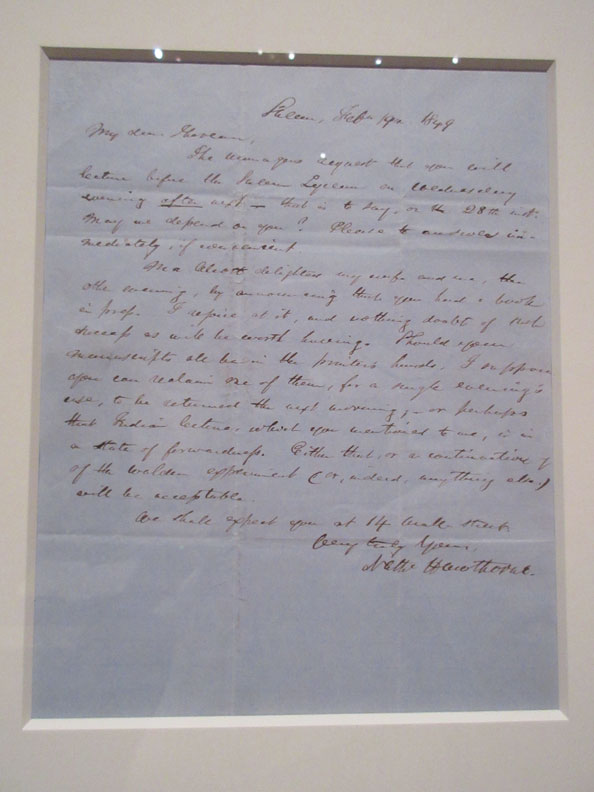 Salem, Feby 19th 1849
My dear Thoreau,
The managers request that you will
lecture before the Salem Lyceum on Wednesday
evening after next — that is to say, on the 28th inst.
May we depend on you? Please to answer im-
mediately, if convenient.
Mr Alcott delighted my wife and me, the
other evening, by announcing that you had a book
in press. I rejoice at it, and nothing doubt of such
success as will be worth having. Should your
manuscripts all be in the printer's hands, I suppose
you can reclaim one of them, for a single evening's
use, to be returned the next morning; — or perhaps
that Indian lecture, which you mentioned to me, is in
a state of forwardness. Either that, or a continuation of
of the Walden experiment (or, indeed, anything else,)
will be acceptable.
We shall expect you at 14 Mall street.
Very truly Yours,
Nathl Hawthorne.